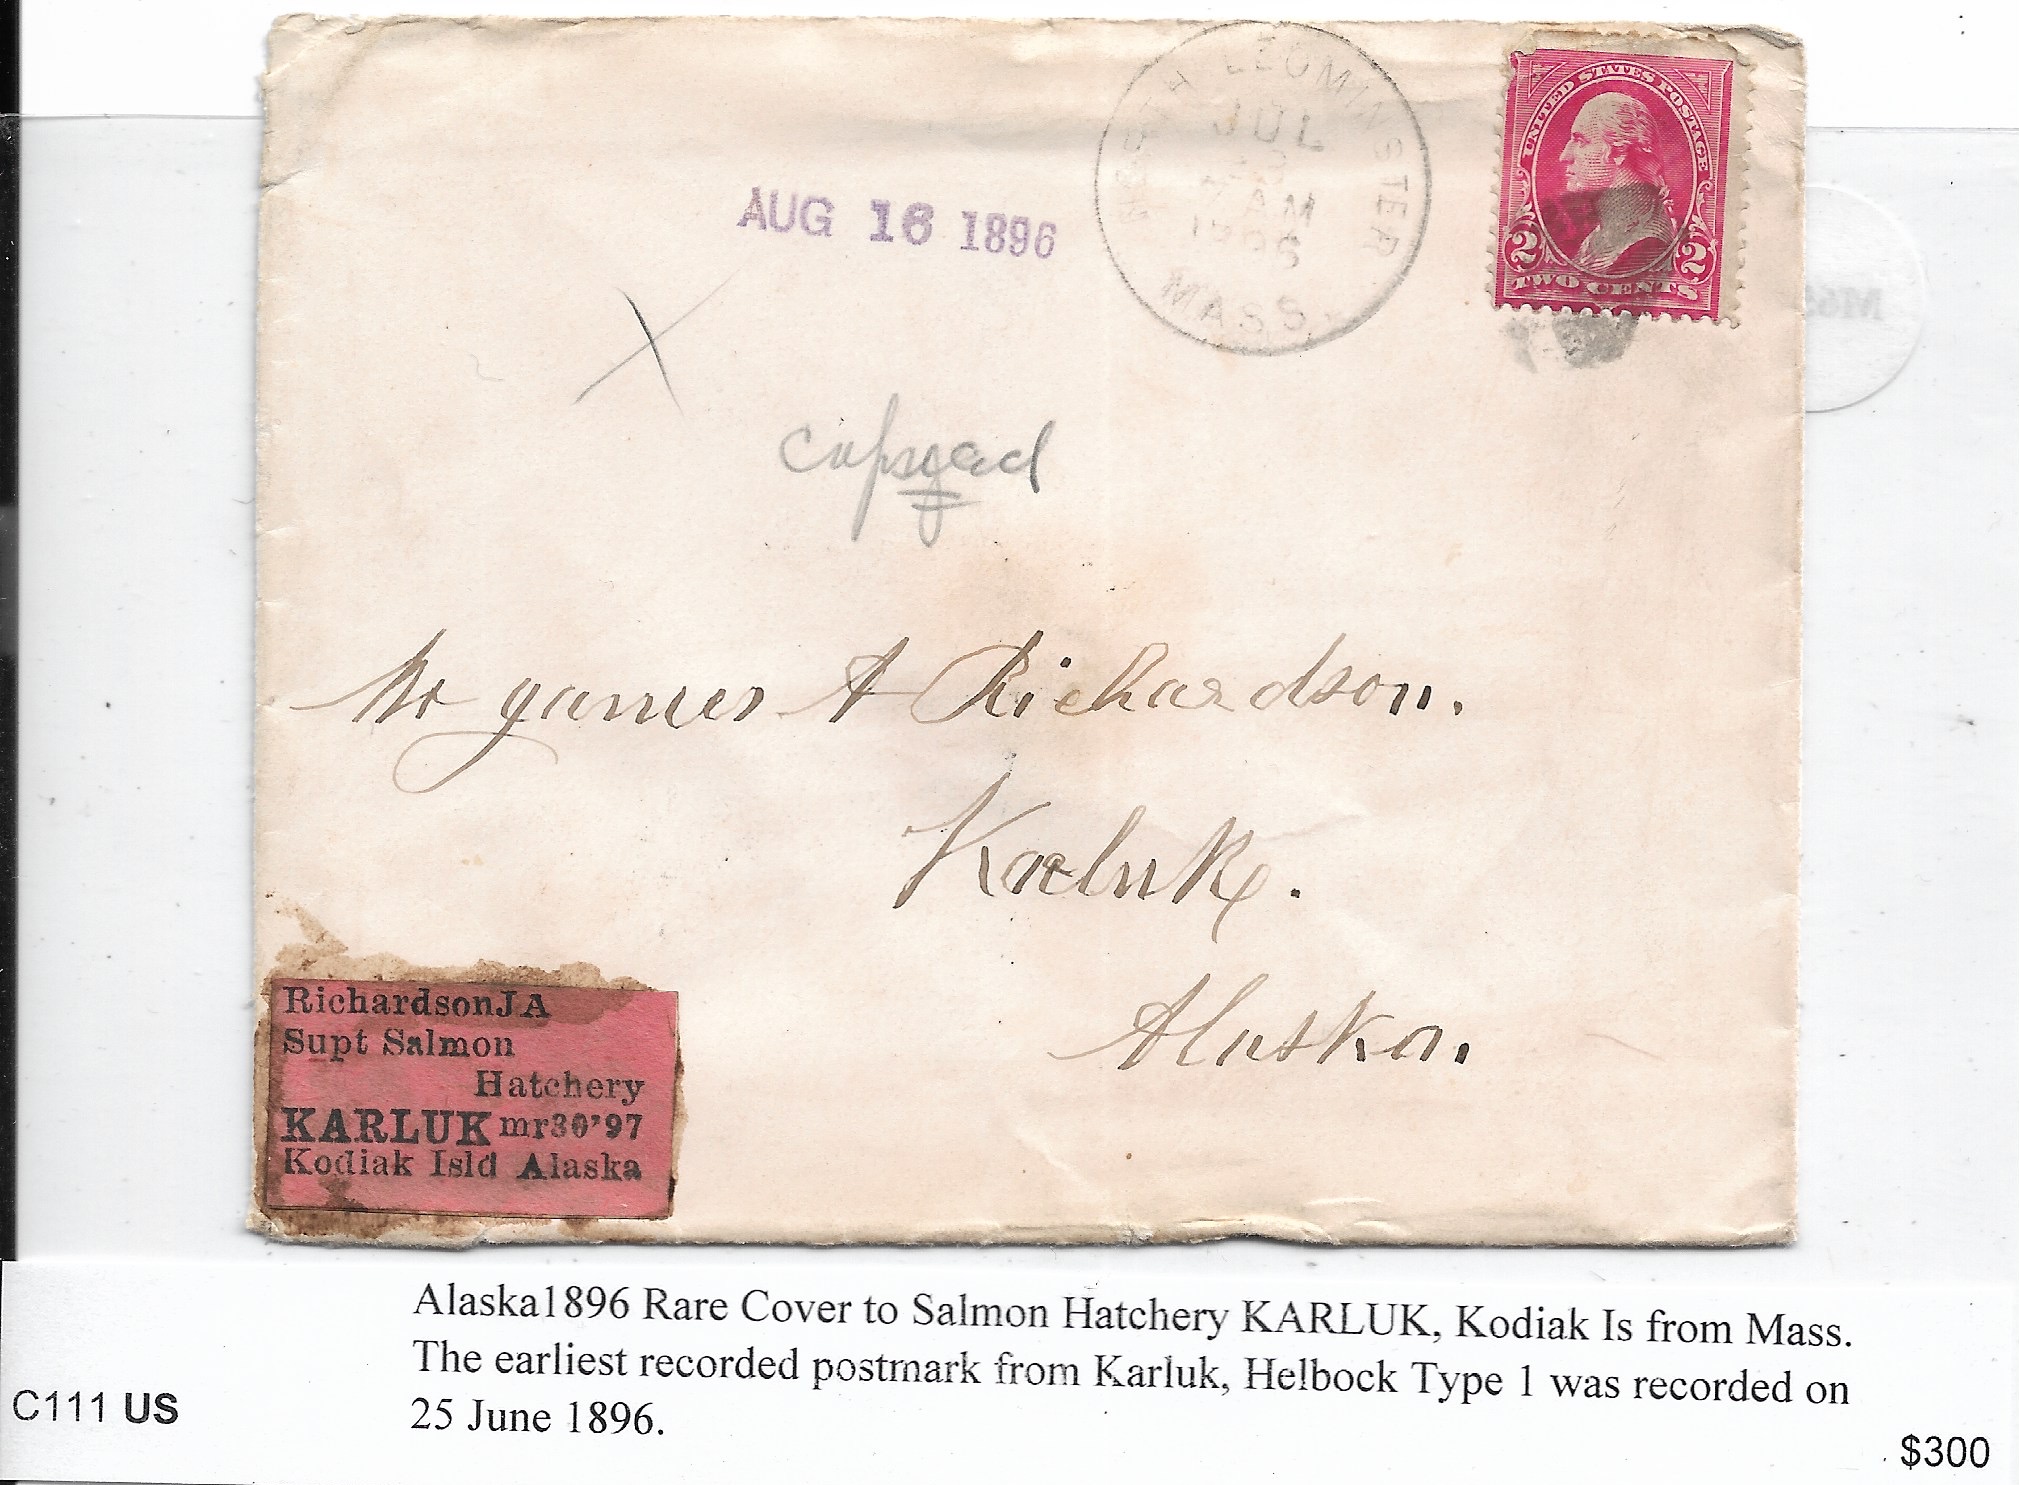 NORTH LEOMINSTER
JUL
AM
MASS.
UNITED STATES POSTAGE
2 2
TWO CENTS
AUG 16 1896
X
Mr James A Richardson.
Karluk.
Alaska.
RichardsonJA
Supt Salmon
Hatchery
KARLUK mr30'97
Kodiak Isld Alaska
Alaska1896 Rare Cover to Salmon Hatchery KARLUK, Kodiak Is from Mass.
The earliest recorded postmark from Karluk, Helbock Type 1 was recorded on
25 June 1896.
C111 US
$300